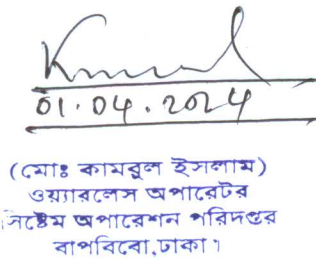 01.04.2024
(মোঃ কামরুল ইসলাম)
ওয়্যারলেস অপারেটর
সিষ্টেম অপারেশন পরিদপ্তর
বাপবিবো,ঢাকা।